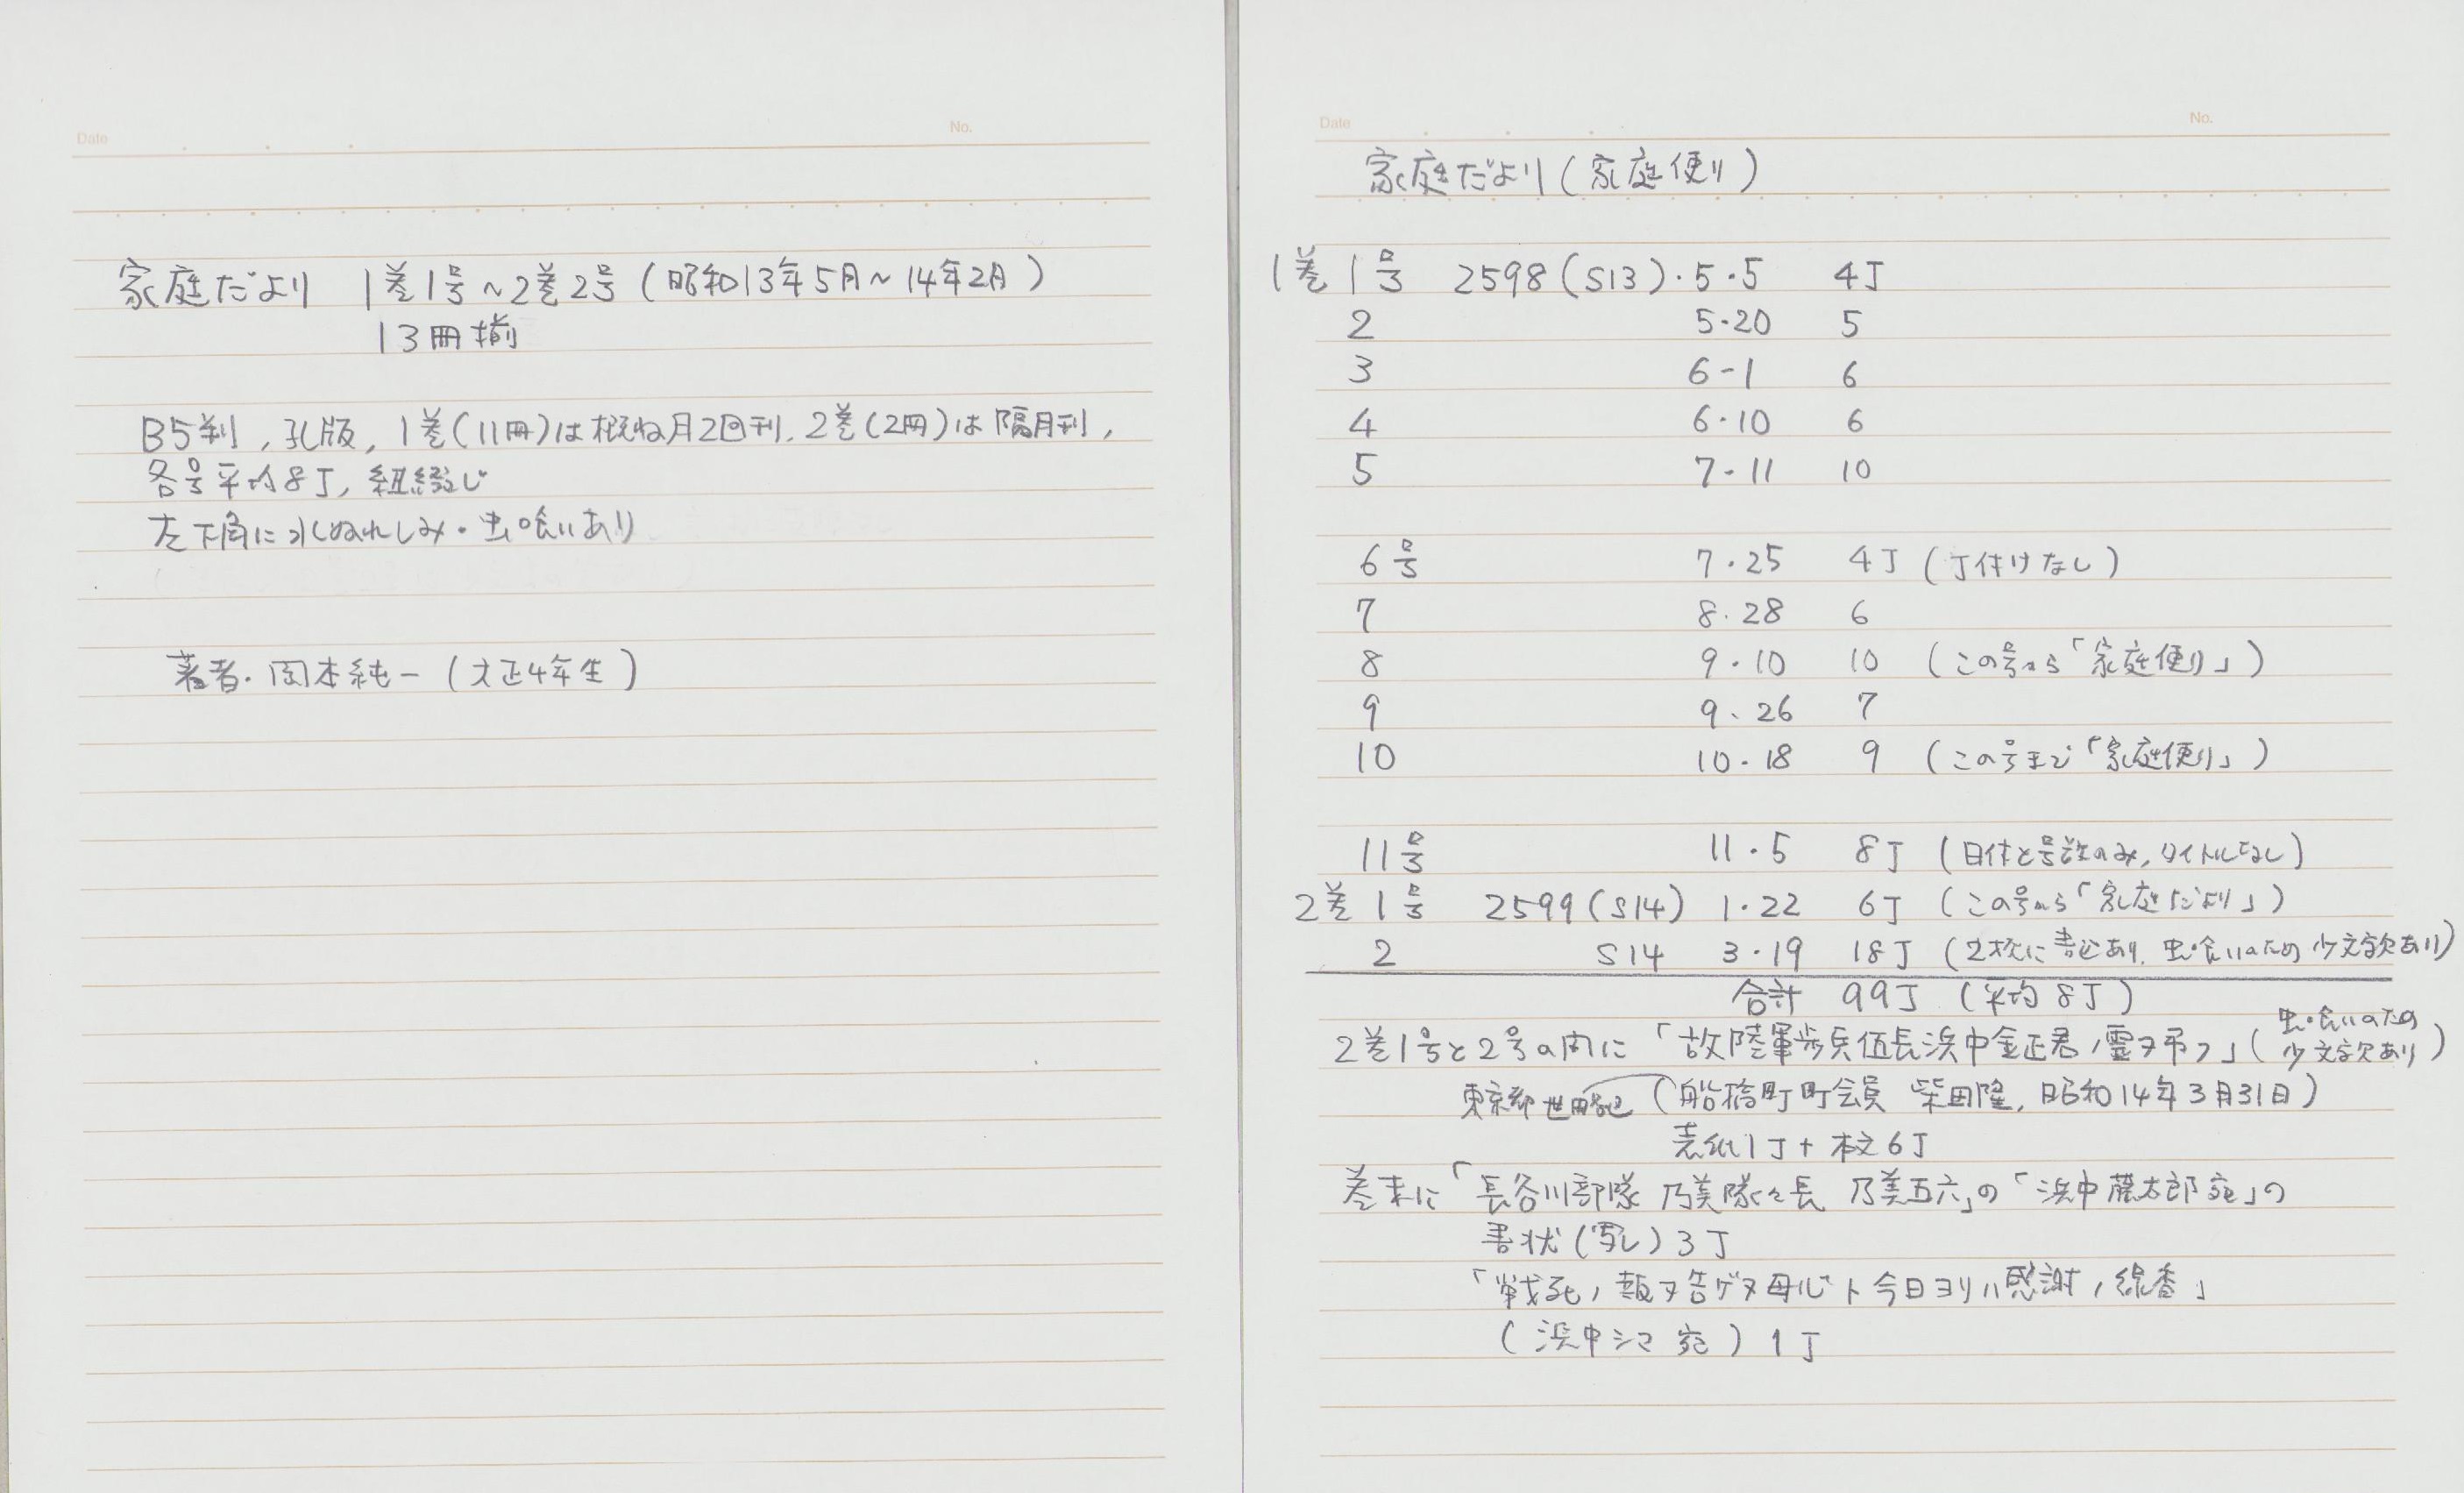 Date
No.
家庭だより 1巻1号～2巻2号(昭和13年5月～14年2月)
13冊揃
B5判,孔版,1巻(11冊)は概ね月2回刊,2巻(2冊)は隔月刊,
各号平均8丁,紐綴じ
左下角に水ぬれしみ・虫喰いあり
著者・岡本純一(大正4年生)
Date
No.
家庭だより(家庭便り)
1巻1号 2598(S13)・5・5 4丁
2 5・20 5
3 6-1 6
4 6・10 6
5 7-11 10
6号 7・25 4丁(丁付けなし)
7 8・28 6
8 9・10 10 (この号から「家庭便り」)
9 9、26 7
10 10・18 9 (この号まで「家庭便り」)
11号 11・5 8丁(日付と号数のみ,タイトルなし)
2巻1号 2599(S14) 1・22 6丁(この号から「家庭だより」)
2 S14 3・19 18丁(2枚に書込あり,虫喰いのため少文字欠あり)
合計 99丁(平均8丁)
2巻1号と2号の間に「故陸軍歩兵伍長浜中金正君ノ霊ヲ弔フ」(虫喰いのため
少文字欠あり)
東京都世田谷区(船橋町町会員 柴田隆,昭和14年3月31日)
表紙1丁+本文6丁
巻末に「長谷川部隊 乃美隊々長 乃美五六」の「浜中藤太郎宛」の
書状(写し)3丁
「戦死ノ報ヲ告ゲヌ母心ト今日ヨリハ感謝ノ線香」
(浜中シマ宛)1丁